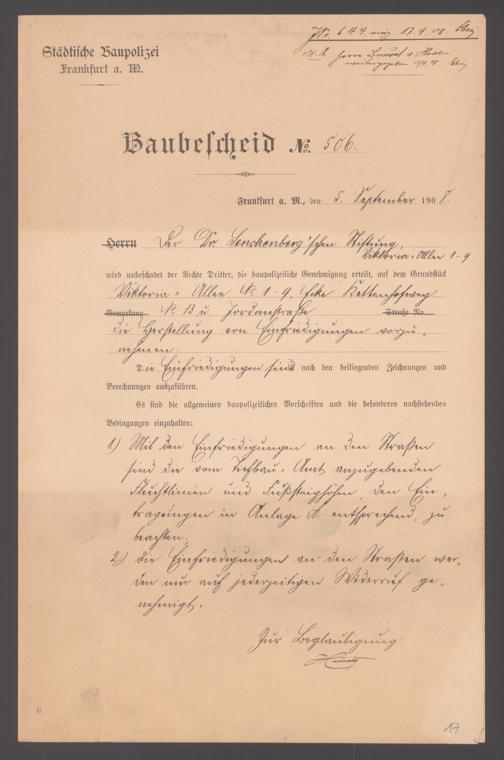 No 644 eing. 17.9.08
Herrn Baurat v.
Städtische Baupolizei
Frankfurt a. M.
Baubescheid No. 506.
Frankfurt a. M., den 5. September 1908.
Herrn Der Dr. Senckenberg'schen Stiftung,
Viktoria-Allee 1-9
wird unbeschadet der Rechte Dritter, die baupolizeiliche Genehmigung erteilt, auf dem Grundstück
Viktoria-Allee No 1-9, Ecke Kettenhofweg
Gemarkung No 13 u. Jordanstraße Straße No.
die Herstellung von Einfriedigungen vorzu-
nehmen.
Die Einfriedigungen sind nach den beiliegenden Zeichnungen und
Berechnungen auszuführen.
Es sind die allgemeinen baupolizeilichen Vorschriften und die besonderen nachstehenden
Bedingungen einzuhalten:
1) Mit den Einfriedigungen an den Straßen
sind die vom Tiefbau-Amt anzugebenden
Fluchtlinien und Fußsteighöhen, den Ein-
tragungen in Anlage A. entsprechend, zu
beachten.
2) die Einfriedigungen an den Straßen wer-
den nur auf jederzeitigen Widerruf ge-
nehmigt.
Zur Beglaubigung:
C.
17